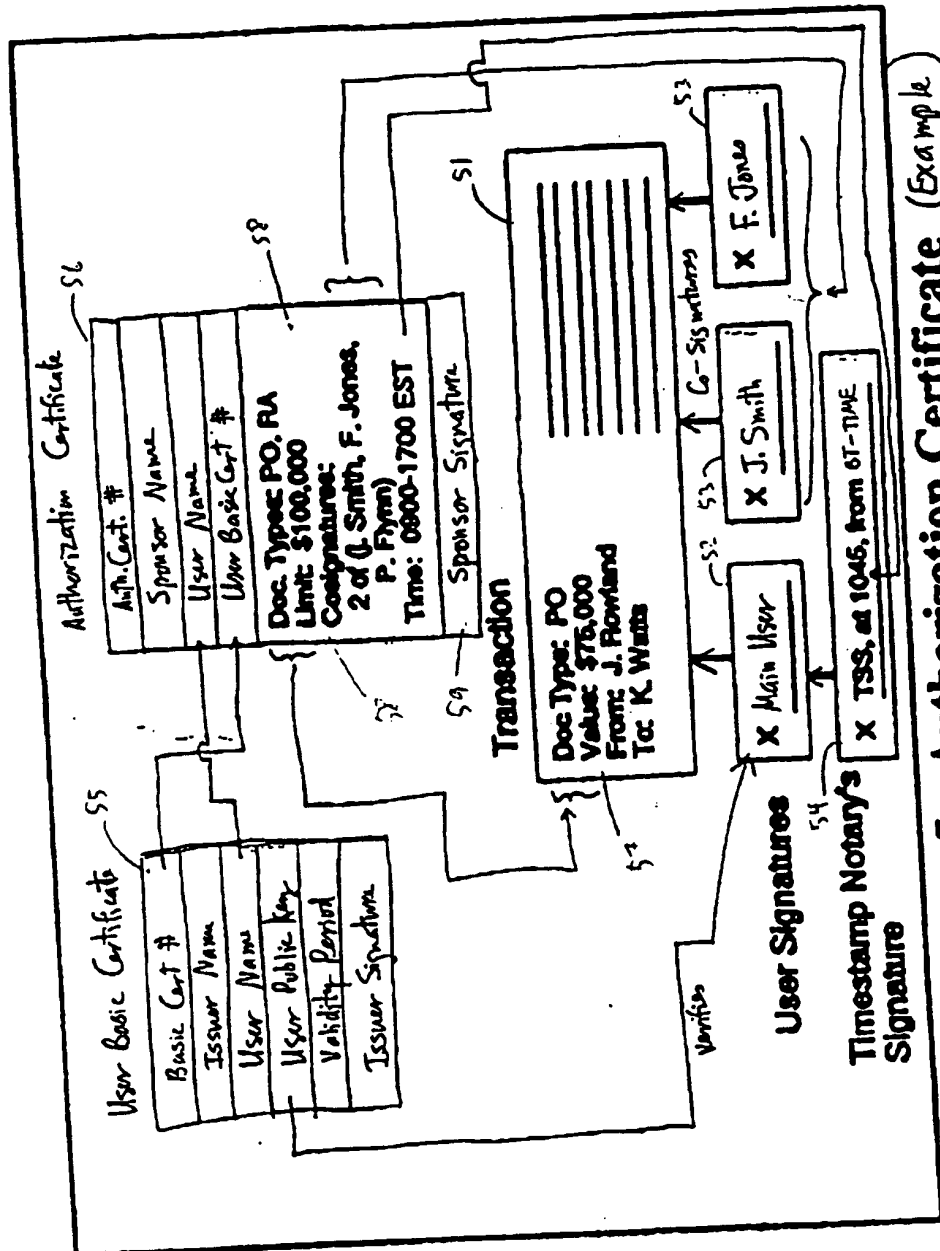 User Basic Certificate
55
Basic Cert #
Issuer Name
User Name
User Public Key
Validity Period
Issuer Signature
Authorization Certificate
56
Auth. Cert. #
Sponsor Name
User Name
User Basic Cert #
58
Doc. Types: PO, RA
Limit: $100,000
Cosignatures:
2 of (J. Smith, F. Jones,
P. Flynn)
Time: 0900-1700 EST
59
Sponsor Signature
Transaction
51
Doc Type: PO
Value: $75,000
From: J. Rowland
To: K. Watts
Verifies
User Signatures
52
X Main User
Co-Signatures
53
X J. Smith
53
X F. Jones
54
Timestamp Notary's
Signature
X TSS, at 1045, from 6T-TIME
Authorization Certificate (Example